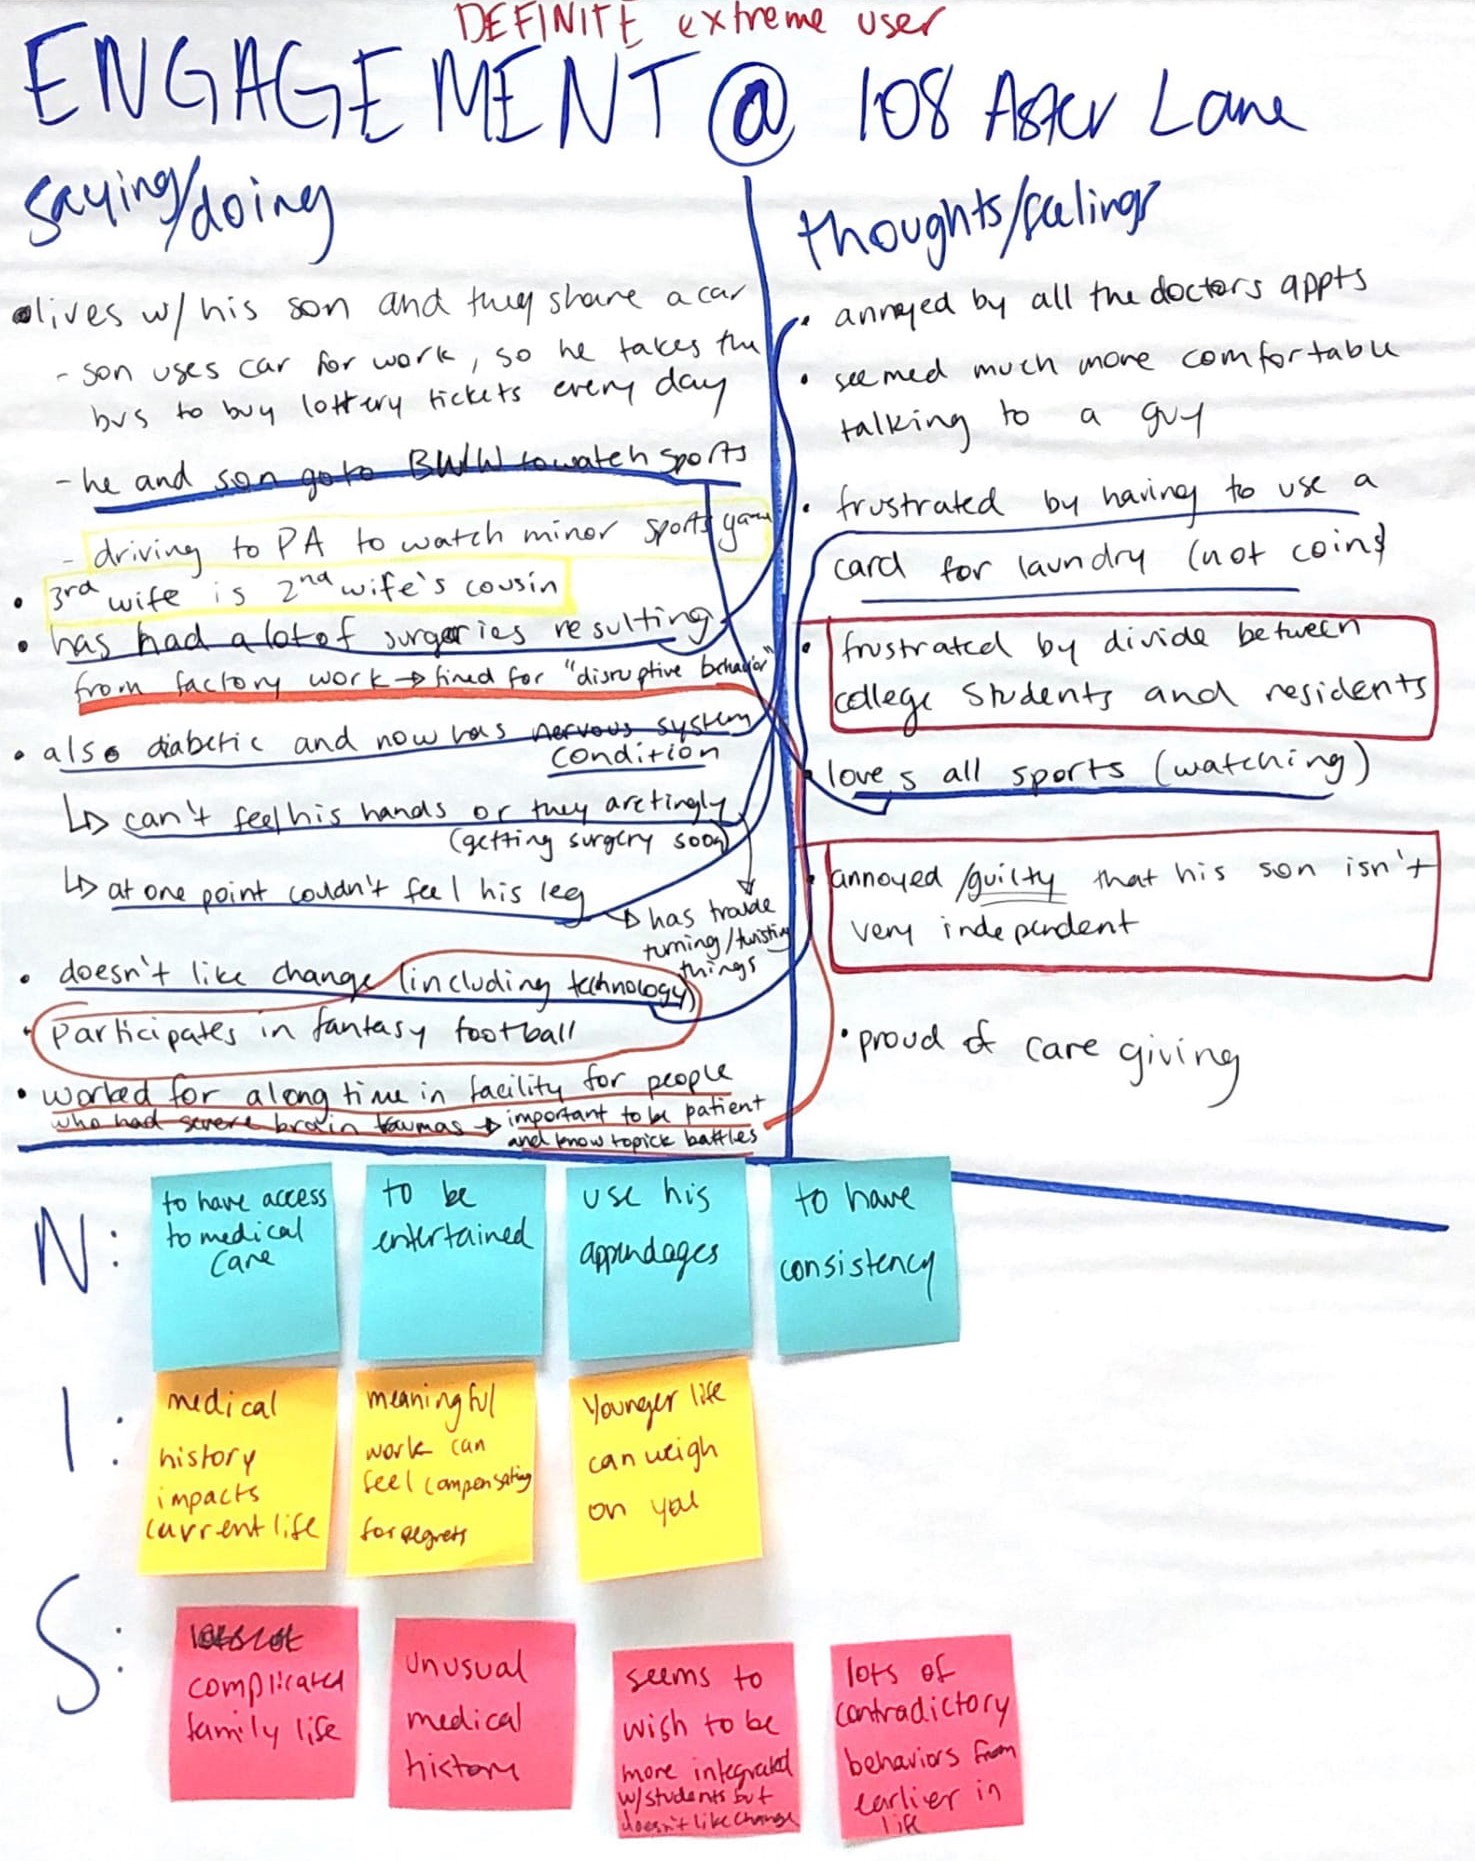 DEFINITE extreme user
ENGAGEMENT @ 108 Aster Lane
saying/doing
lives w/ his son and they share a car
- son uses car for work, so he takes the
bus to buy lottery tickets every day
- he and son go to BWW to watch sports
- driving to PA to watch minor sports game
• 3rd wife is 2nd wife's cousin
• has had a lot of surgeries resulting
from factory work → fired for "disruptive behavior"
• also diabetic and now has nervous system
condition
↳ can't feel his hands or they are tingly
(getting surgery soon)
↳ at one point couldn't feel his leg
→ has trouble
turning/twisting
things
• doesn't like change (including technology)
• Participates in fantasy football
• worked for a long time in facility for people
who had severe brain traumas → important to be patient
and know to pick battles
thoughts/feelings
• annoyed by all the doctors appts
• seemed much more comfortable
talking to a guy
• frustrated by having to use a
card for laundry (not coins)
• frustrated by divide between
college students and residents
• loves all sports (watching)
• annoyed/guilty that his son isn't
very independent
• proud of care giving
N:
to have access
to medical
care
to be
entertained
use his
appendages
to have
consistency
I:
medical
history
impacts
current life
meaningful
work can
feel compensating
for regrets
Younger life
can weigh
on you
S:
complicated
family life
unusual
medical
history
seems to
wish to be
more integrated
w/students but
doesn't like change
lots of
contradictory
behaviors from
earlier in
life